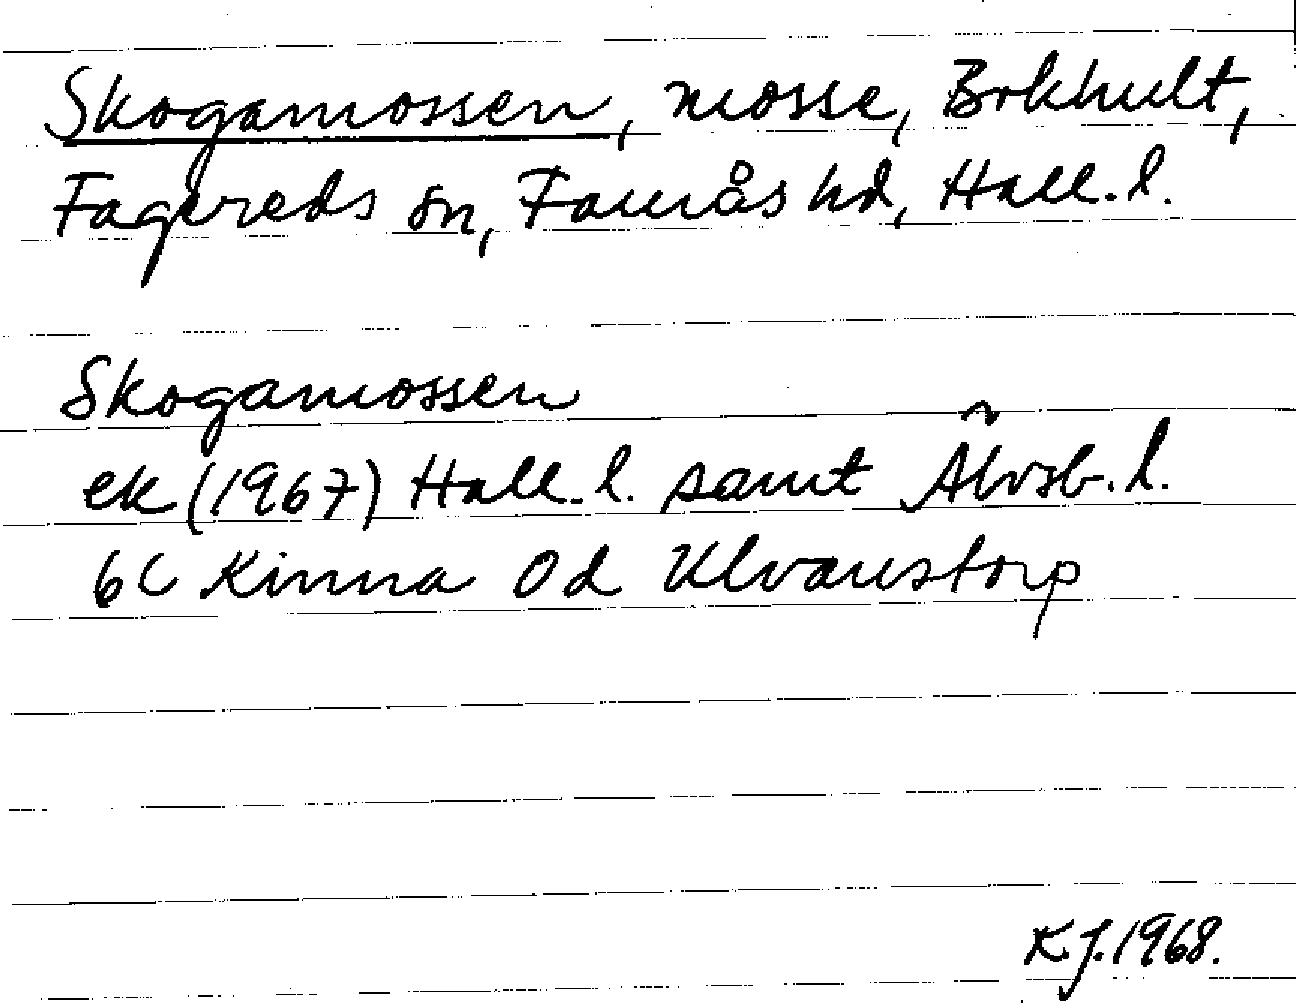 Skogamossen, mosse, Bokhult,
Fagereds sn, Faurås hd, Hall. l.
Skogamossen
ek (1967) Hall. l. samt Älvsb. l.
6C Kinna 0d Ulvanstorp
K.J. 1968.